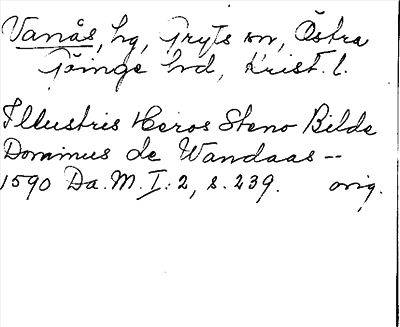 Vanås, hg, Gryts sn, Östra
Göinge hd, Krist. l.
Illustris Heros Steno Bilde
Dominus de Wandaas --
1590 Da. M. I: 2, s. 239. orig.